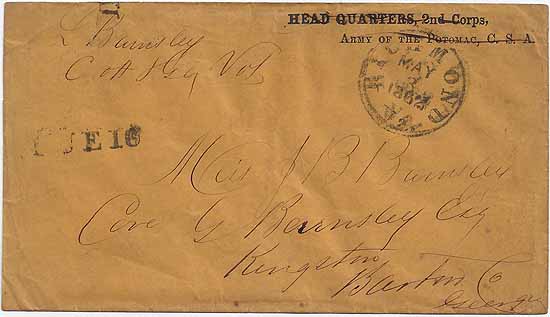 HEAD QUARTERS, 2nd Corps,
ARMY OF THE POTOMAC, C. S. A.
L Barnsley
Co A Reg Vol
RICHMOND
MAY
1862
VA.
DUE 10
Miss J B Barnsley
Care G Barnsley Esq
Kingston
Bartow Co
Georgia